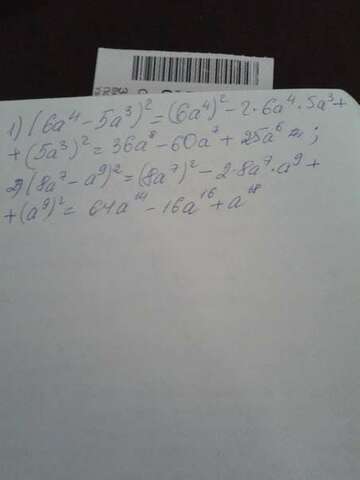 1) (6a⁴ - 5a³)² = (6a⁴)² - 2·6a⁴·5a³ +
+ (5a³)² = 36a⁸ - 60a⁷ + 25a⁶ ;
2) (8a⁷ - a⁹)² = (8a⁷)² - 2·8a⁷·a⁹ +
+ (a⁹)² = 64a¹⁴ - 16a¹⁶ + a¹⁸